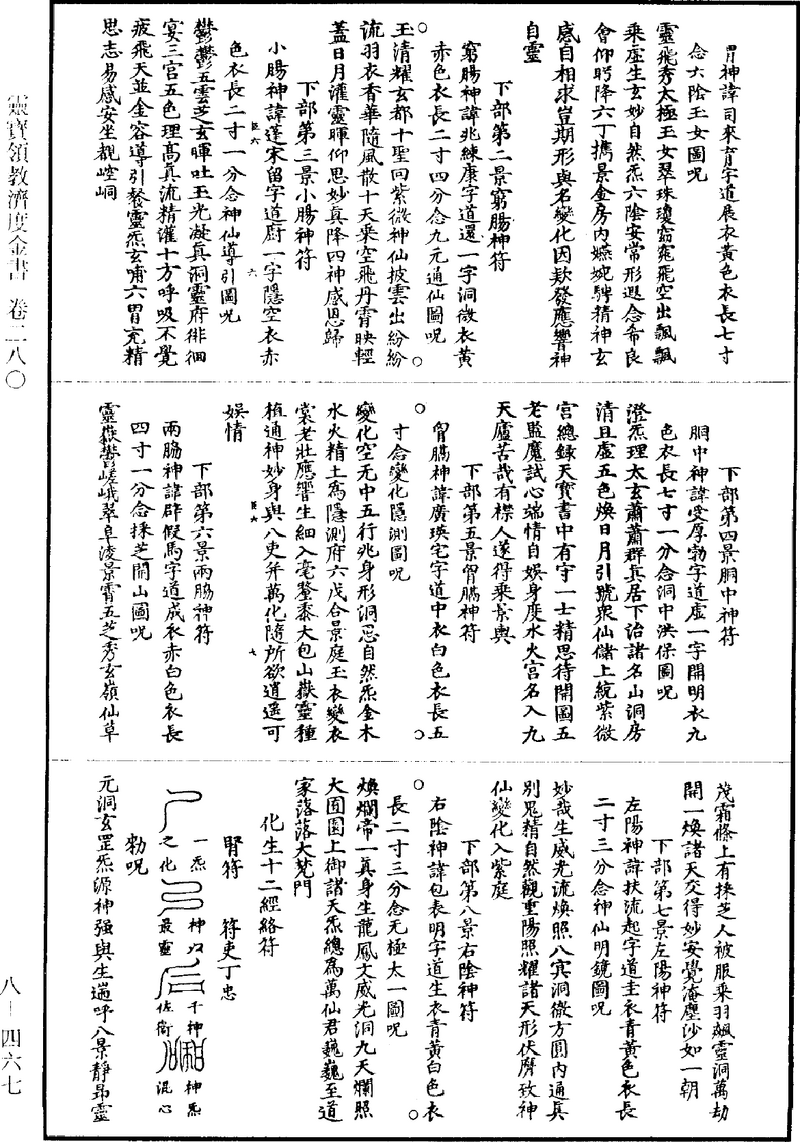 胃神諱司來育字道展衣黃色衣長七寸
念六陰玉女圖呪
靈飛秀太極玉女翠珠瓊窈窕飛空出飄飄
乘虛生玄妙自然炁六陰安常形遐念希良
會仰眄降六丁攜景金房內嬿婉騁精神玄
感自相求豈期形與名變化因欻發應響神
自靈
下部第二景窮腸神符
窮腸神諱兆練康字道還一字洞微衣黃
赤色衣長二寸四分念九元通仙圖呪
玉清耀玄都十聖回紫微神仙披雲出紛紛
流羽衣香華隨風散十天乘空飛丹霄映輕
蓋日月灌靈暉仰思妙真降四神感恩歸
下部第三景小腸神符
小腸神諱蓬宋留字道廚一字隱空衣赤
色衣長二寸一分念神仙導引圖呪
鬱鬱五雲芝玄暉吐玉光凝真洞靈府徘徊
宴三宫五色理高真流精灌十方呼吸不覺
疲飛天並金容導引餐靈炁玄哺六胃充精
思志易感安坐觀崆峒
下部第四景胴中神符
胴中神諱受厚勃字道虛一字開明衣九
色衣長七寸一分念洞中洪保圖呪
澄炁理太玄蕭蕭群真居下治諸名山洞房
清且虛五色煥日月引號衆仙儲上統紫微
宮總錄天寶書中有守一士精思待開圖五
老監魔試心端情自娱身度水火宫名入九
天廬苦哉有襟人遂得乘景輿
下部第五景胷膈神符
胷膈神諱廣瑛宅字道中衣白色衣長五
寸念變化隱測圖呪
變化空无中五行兆身形洞忍自然炁金木
水火精土爲隱測府六戊合景庭玉衣變衣
裳老壯應響生細入毫釐黍大包山嶽靈種
植通神妙身與八史并萬化隨所欲逍遥可
娱情
下部第六景兩脇神符
兩脇神諱辟假馬字道成衣赤白色衣長
四寸一分念採芝開山圖呪
靈嶽鬱嵯峨翠阜淩景霄五芝秀玄嶺仙草
茂霜條上有採芝人被服乘羽飆靈洞萬劫
開一煥諸天交得妙安覺淹塵沙如一朝
下部第七景左陽神符
左陽神諱扶流起字道圭衣青黃色衣長
二寸三分念神仙明鏡圖呪
妙哉生威光流煥照八冥洞微方圓內通真
別鬼精自然觀重陽照耀諸天形伏膺致神
仙變化入紫庭
下部第八景右陰神符
右陰神諱包表明字道生衣青黃白色衣
長二寸三分念无極太一圖呪
煥爛帝一真身生龍鳳文威光洞九天爛照
大囿圃上御諸天炁總爲萬仙君巍巍至道
家落落大梵門
化生十二經絡符
腎符
符吏丁忠
一炁
之化
神以
最靈
千神
佐衞
神炁
混心
勑呪
元洞玄罡炁源神强與生遄呼八景静昂靈
靈寶領教濟度金書 卷二八〇
八-四六七